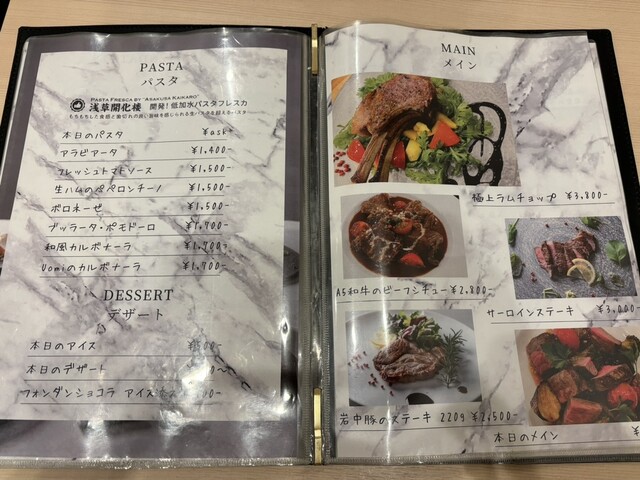 PASTA
パスタ
PASTA FRESCA BY "ASAKUSA KAIKARO"
浅草開化楼 開発！低加水パスタフレスカ
本日のパスタ ¥ask
アラビアータ ¥1,400-
フレッシュトマトソース ¥1,500-
生ハムのペペロンチーノ ¥1,500-
ボロネーゼ ¥1,500-
ブッラータ・ポモドーロ ¥1,700-
和風カルボナーラ ¥1,700-
Uomiのカルボナーラ ¥1,700-
DESSERT
デザート
本日のアイス
本日のデザート
フォンダンショコラ アイス
MAIN
メイン
極上ラムチョップ ¥3,800-
A5和牛のビーフシチュー ¥2,800-
サーロインステーキ ¥3,000-
岩中豚のステーキ 220g ¥2,500-
本日のメイン ¥